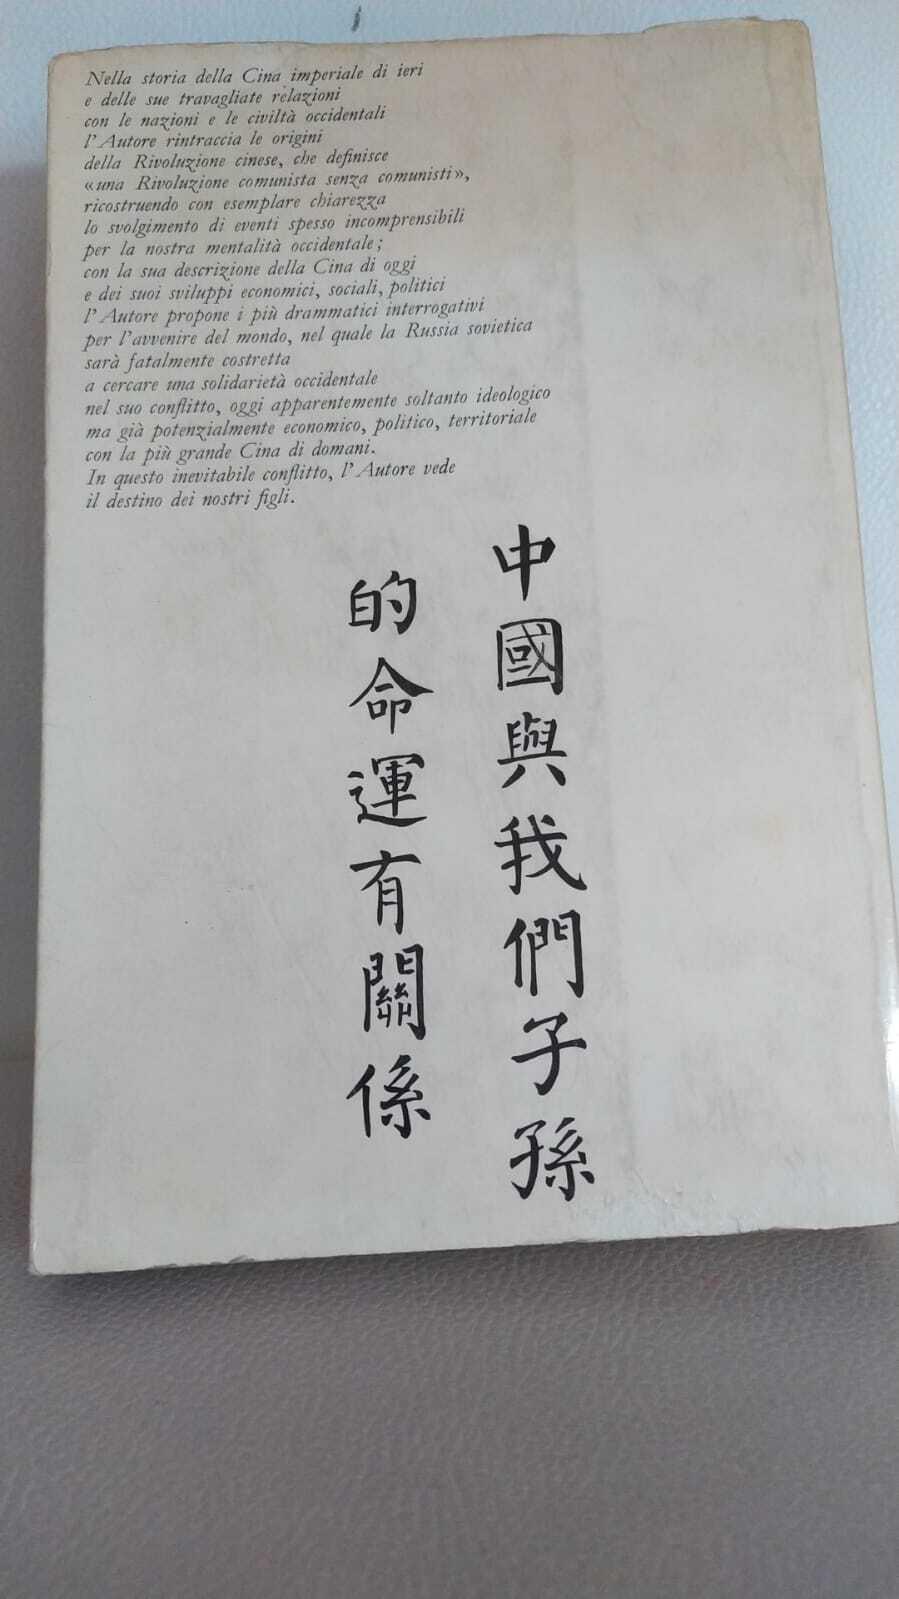 Nella storia della Cina imperiale di ieri
e delle sue travagliate relazioni
con le nazioni e le civiltà occidentali
l'Autore rintraccia le origini
della Rivoluzione cinese, che definisce
«una Rivoluzione comunista senza comunisti»,
ricostruendo con esemplare chiarezza
lo svolgimento di eventi spesso incomprensibili
per la nostra mentalità occidentale;
con la sua descrizione della Cina di oggi
e dei suoi sviluppi economici, sociali, politici
l'Autore propone i più drammatici interrogativi
per l'avvenire del mondo, nel quale la Russia sovietica
sarà fatalmente costretta
a cercare una solidarietà occidentale
nel suo conflitto, oggi apparentemente soltanto ideologico
ma già potenzialmente economico, politico, territoriale
con la più grande Cina di domani.
In questo inevitabile conflitto, l'Autore vede
il destino dei nostri figli.
中國與我們子孫
的命運有關係